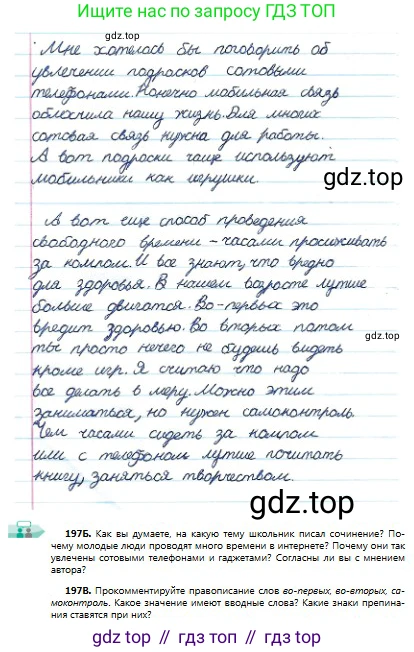 Ищите нас по запросу ГДЗ ТОП
Мне хотелось бы поговорить об
увлечении подросков сотовыми
телефонами. Конечно мобильная связь
облосчила нашу жизнь. Для многих
сотовая связь нужна для работы.
А вот подроски чаще используют
мобильники как игрушки.
gdz.top
А вот еще способ проведения
свободного времени – часами просиживать
за компом. И все знают, что вредно
для здоровья. В нашем возрасте лутше
больше двигатся. Во-первых это
вредит здоровью. Во вторых потом
gdz.top
ты просто нечего не будешь видеть
кроме игр. Я считаю что надо
все делать в меру. Можно этим
заниматься, но нужен самоконтроль.
Чем часами сидеть за компом
или с телефоном лутше почитать
книгу, заняться творчеством.
gdz.top
197Б. Как вы думаете, на какую тему школьник писал сочинение? По-
чему молодые люди проводят много времени в интернете? Почему они так
увлечены сотовыми телефонами и гаджетами? Согласны ли вы с мнением
автора?
197В. Прокомментируйте правописание слов во-первых, во-вторых, са-
моконтроль. Какое значение имеют вводные слова? Какие знаки препина-
ния ставятся при них?
gdz.top // gdz.top // gdz.top